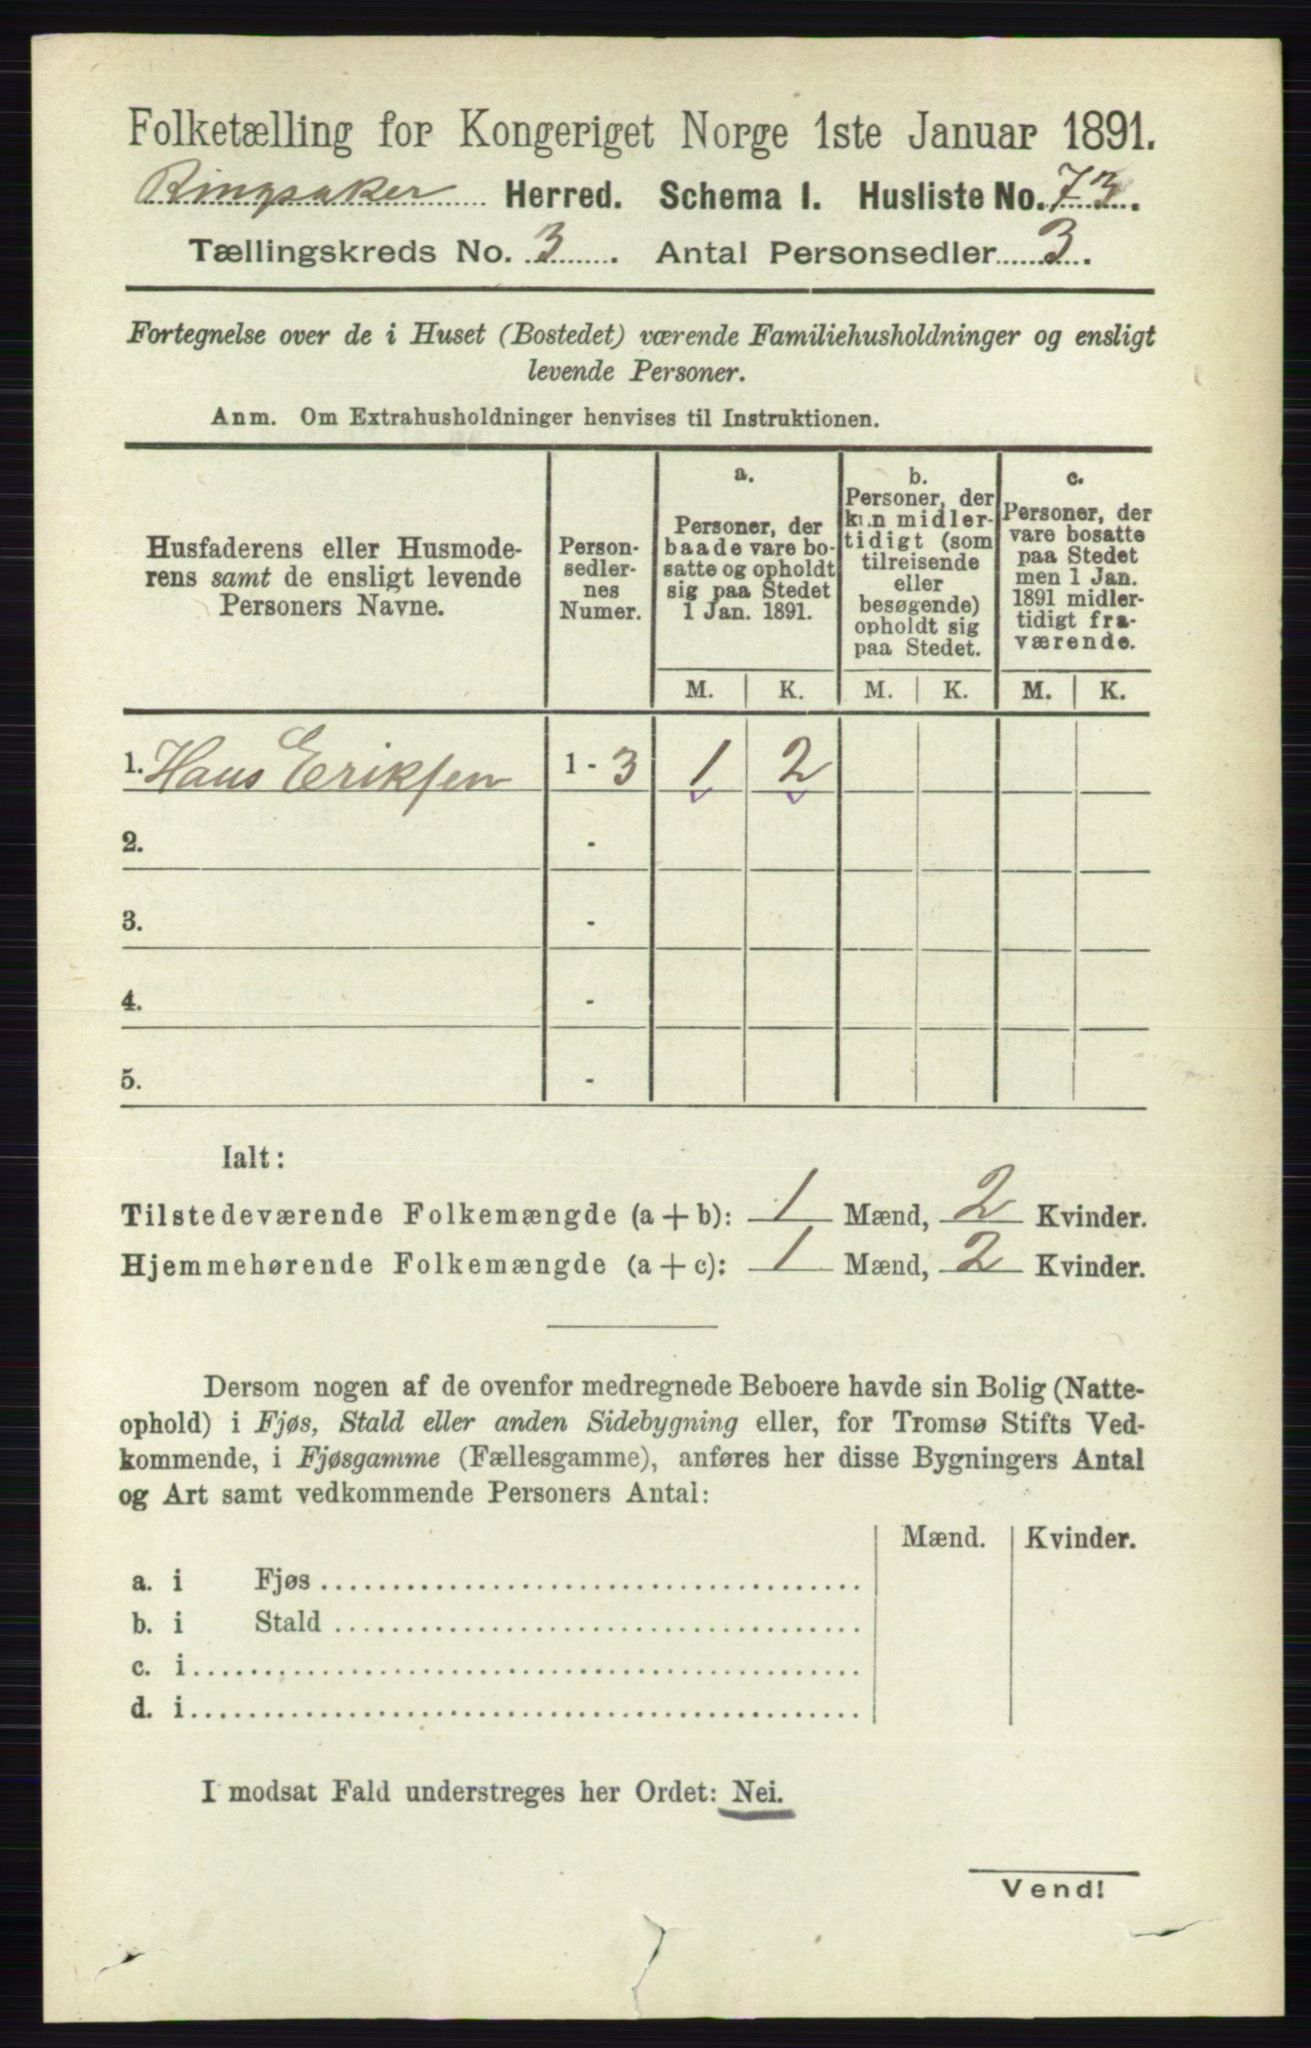 Folketælling for Kongeriget Norge 1ste Januar 1891.
Ringsaker Herred. Schema I. Husliste No. 73.
Tællingskreds No. 3. Antal Personsedler 3.
Fortegnelse over de i Huset (Bostedet) værende Familiehusholdninger og ensligt
levende Personer.
Anm. Om Extrahusholdninger henvises til Instruktionen.
Husfaderens eller Husmode-
rens samt de ensligt levende
Personers Navne.
Person-
sedler-
nes
Numer.
a.
Personer, der
baade vare bo-
satte og opholdt
sig paa Stedet
1 Jan. 1891.
b.
Personer, der
kun midler-
tidigt (som
tilreisende
eller
besøgende)
opholdt sig
paa Stedet.
c.
Personer, der
vare bosatte
paa Stedet
men 1 Jan.
1891 midler-
tidigt fra-
værende.
M. K. M. K. M. K.
1. Hans Eriksen 1 - 3 1 2
2. -
3. -
4. -
5. -
Ialt:
Tilstedeværende Folkemængde (a + b): 1 Mænd, 2 Kvinder.
Hjemmehørende Folkemængde (a + c): 1 Mænd, 2 Kvinder.
Dersom nogen af de ovenfor medregnede Beboere havde sin Bolig (Natte-
ophold) i Fjøs, Stald eller anden Sidebygning eller, for Tromsø Stifts Ved-
kommende, i Fjøsgamme (Fællesgamme), anføres her disse Bygningers Antal
og Art samt vedkommende Personers Antal:
Mænd. Kvinder.
a. i Fjøs
b. i Stald
c. i
d. i
I modsat Fald understreges her Ordet: Nei.
Vend!